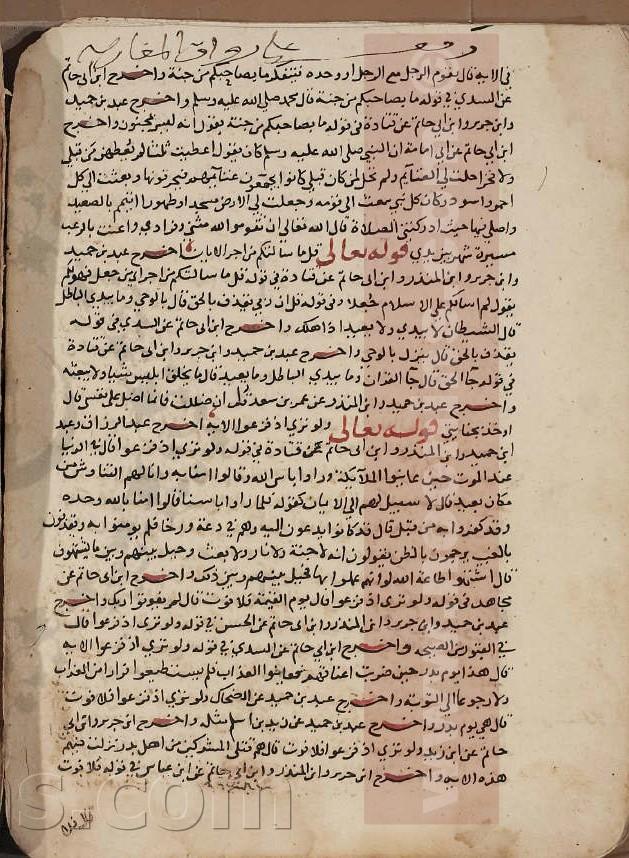 وقف على رواق المغاربه
في الايه قال يقوم الرجل مع الرجل او وحده فيتفكر ما بصاحبكم من جنة واخرج ابن ابي حاتم
عن السدي في قوله ما بصاحبكم من جنة قال محمد صلى الله عليه وسلم واخرج عبد بن حميد
وابن جرير وابن ابي حاتم عن قتادة في قوله ما بصاحبكم من جنة يقول انه ليس بمجنون واخرج
ابن ابي حاتم عن ابي امامة ان النبي صلى الله عليه وسلم كان يقول اعطيت ثلثا لم يعطهن من قبلي
ولا فخر احلت لي الغنايم ولم تحل لمن كان قبلي كانوا يجمعون غنايمهم فيحرقونها وبعثت الى كل
احمر واسود وكان كل نبي يبعث الى قومه وجعلت لي الارض مسجدا وطهورا اتيمم بالصعيد
واصلي فيها حيث ادركتني الصلاة قال الله تعالى ان تقوموا لله مثنى وفرادي واعنت بالرعب
مسيرة شهر بين يدي قوله تعالى قل ما سالتكم من اجر الايات اخرج عبد بن حميد
وابن جرير وابن المنذر وابن ابي حاتم عن قتادة في قوله قل ما سالتكم من اجر اي من جعل فهو لكم
يقول لم اسالكم على الاسلام جعلا وفي قوله قل ان ربي يقذف بالحق قال بالوحي وما يبدي الباطل
قال الشيطان لا يبدي ولا يعيد اذا هلك واخرج ابن ابي حاتم عن السدي في قوله
يقذف بالحق قال ينزل بالوحي واخرج عبد بن حميد وابن جرير وابن ابي حاتم عن قتادة
في قوله جا الحق قال جا القران وما يبدي الباطل وما يعيد قال ما يخلق ابليس شيا ولا يبعثه
واخرج عبد بن حميد وابن المنذر عن عمر بن سعد قل ان ضللت فانما اضل على نفسي قال
اوخذ بجنايتي قوله تعالى ولو ترى اذ فزعوا الايه اخرج عبد الرزاق وعبد
ابن حميد وابن المنذر وابن ابي حاتم عن قتادة في قوله ولو ترى اذ فزعوا قال في الدنيا
عند الموت حين عاينوا الملايكة وراوا باس الله وقالوا امنا به وانا لهم التناوش من
مكان بعيد قال لا سبيل لهم الى الايمان كقوله فلما راوا باسنا قالوا امنا بالله وحده
وقد كفروا به من قبل قال قد كانوا يدعون اليه وهم في دعة ورخا فلم يومنوا به ويقذفون
بالغيب يرجمون بالظن يقولون انه لا جنة ولا نار ولا بعث وحيل بينهم وبين ما يشتهون
قال اشتهوا طاعة الله لو انهم عملوا بها فحيل بينهم وبين ذلك واخرج ابن ابي حاتم عن
مجاهد في قوله ولو ترى اذ فزعوا قال يوم القيمة فلا فوت قال لم يفوتوا ربك واخرج
عبد بن حميد وابن جرير وابن المنذر وابن ابي حاتم عن الحسن في قوله ولو ترى اذ فزعوا قال
في القبور من الصيحه واخرج ابن ابي حاتم عن السدي في قوله ولو ترى اذ فزعوا الايه
قال هذا يوم بدر حين ضربت اعناقهم فعاينوا العذاب فلم يستطيعوا فرارا من العذاب
ولا رجوعا الى التوبة واخرج عبد بن حميد عن الضحاك ولو ترى اذ فزعوا فلا فوت
قال هي يوم بدر واخرج عبد بن حميد عن زيد بن اسلم مثله واخرج ابن جرير وابن ابي
حاتم عن ابن زيد ولو ترى اذ فزعوا فلا فوت قال هم قتلى المشركين من اهل بدر نزلت فيهم
هذه الايه واخرج ابن جرير وابن المنذر وابن ابي حاتم عن ابن عباس في قوله فلا فوت
s.com